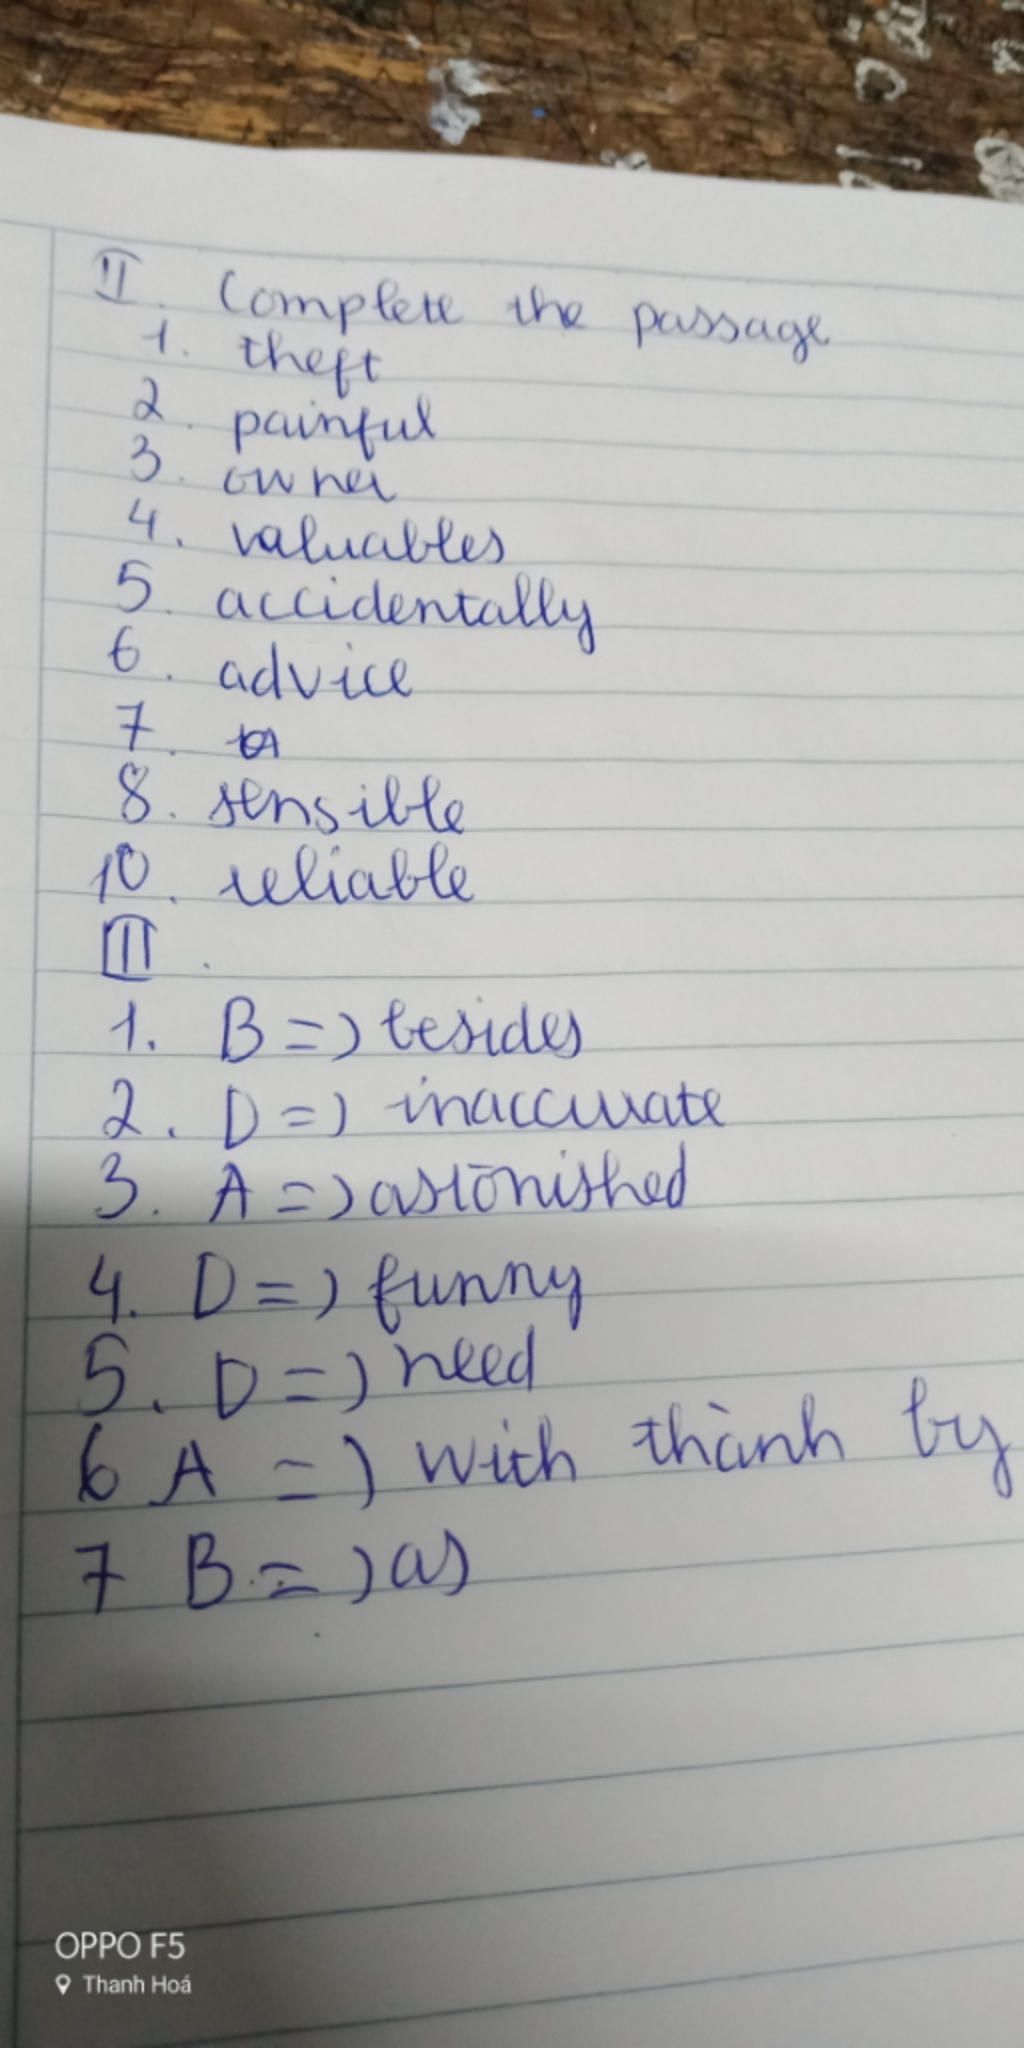 II. Complete the passage
1. theft
2. painful
3. owner
4. valuables
5. accidentally
6. advice
7.
8. sensible
10. reliable
III.
1. B => besides
2. D => inaccurate
3. A => astonished
4. D => funny
5. D => need
6 A => with thành by
7 B => as
OPPO F5
Thanh Hoá